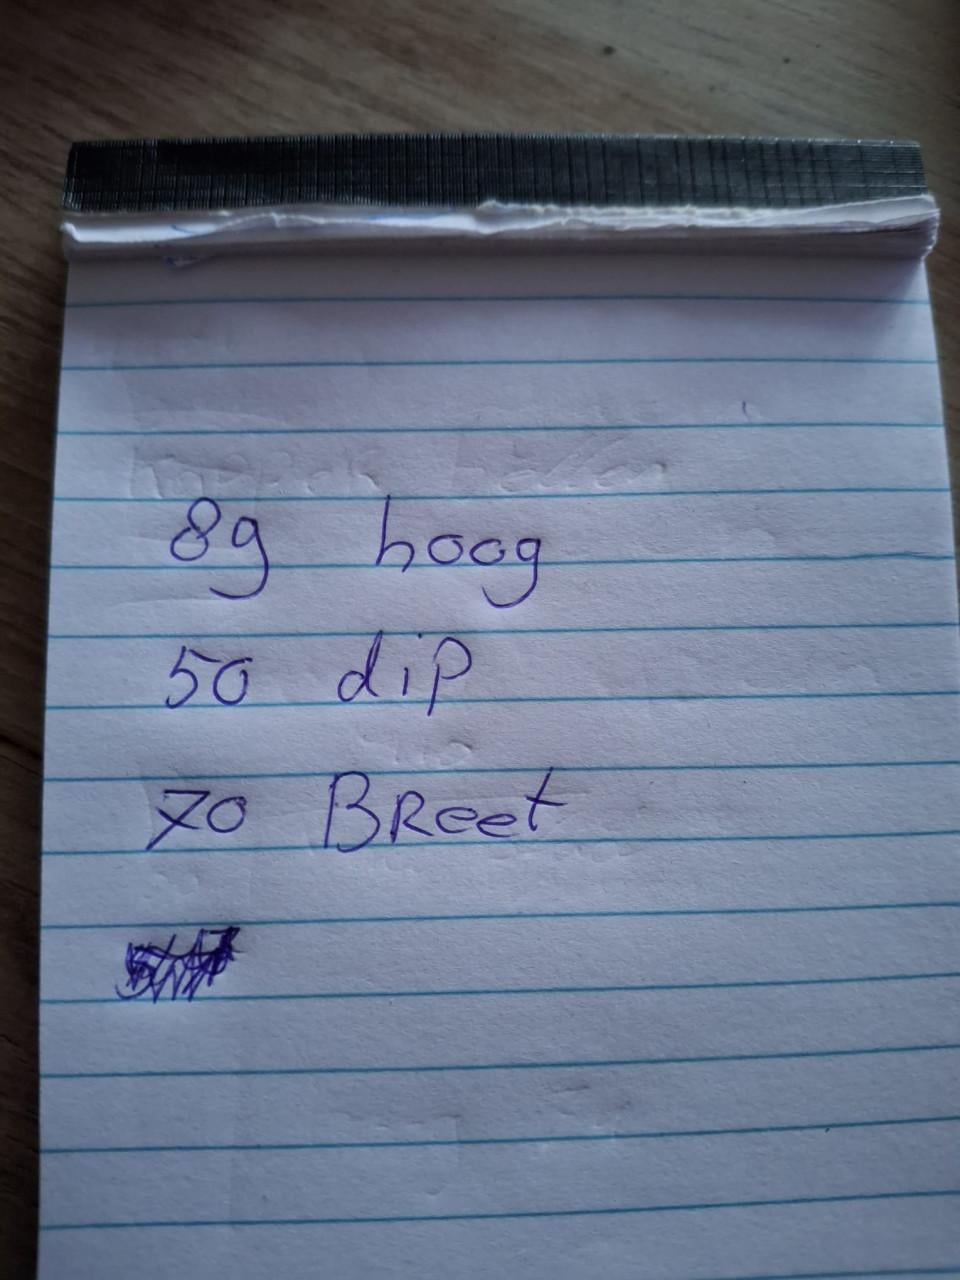 89 hoog
50 dip
70 BReet